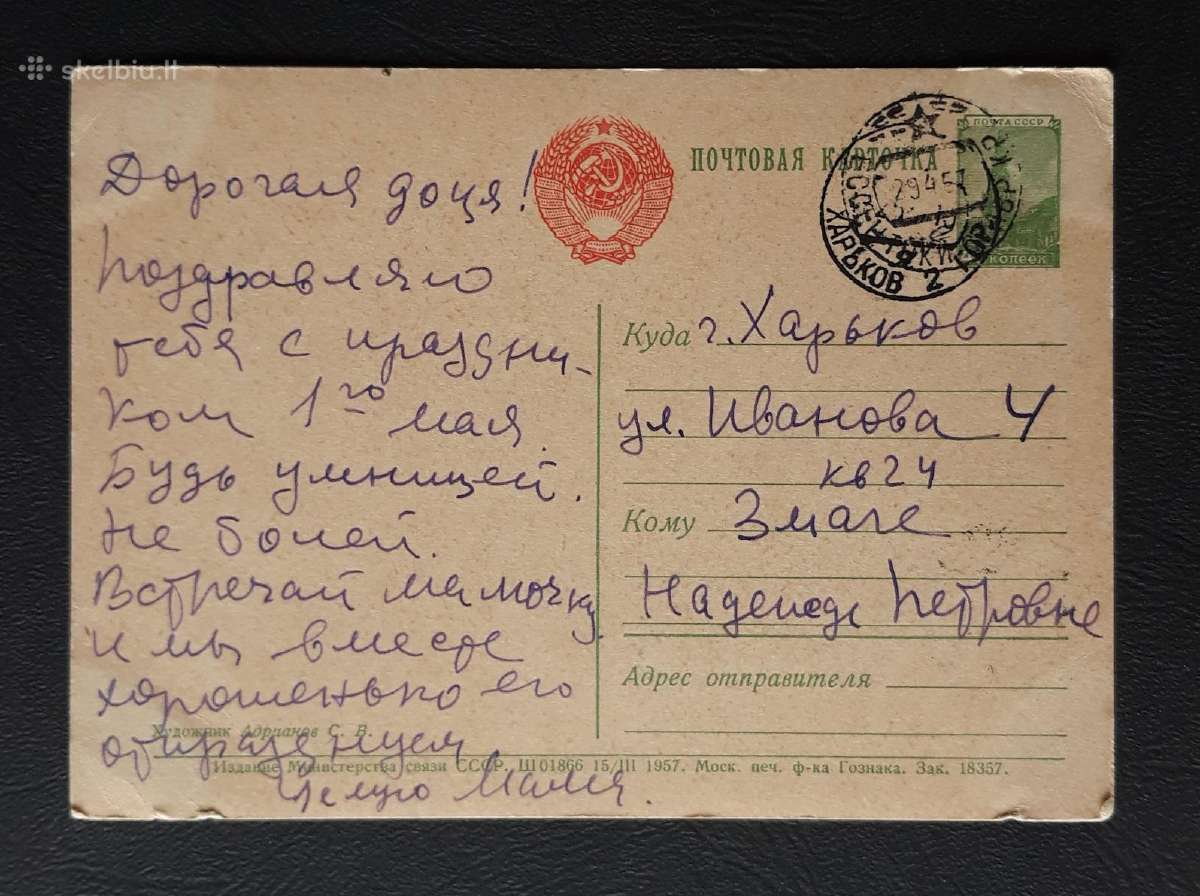 skelbiu.lt
ПОЧТОВАЯ КАРТОЧКА
ПОЧТА СССР
КОПЕЕК
29.4.57
ХАРЬКОВ 2
Дорогая доця!
Поздравляю
тебя с праздни-
ком 1го мая.
Будь умницей.
Не болей.
Встречай мамочку
и мы вместе
хорошенько его
отпразднуем
Целую Мама.
Куда г. Харьков
ул. Иванова 4
кв 24
Кому Змаге
Надежде Петровне
Адрес отправителя
Художник Адрианов С. В.
Издание Министерства связи СССР. Ш01866 15/III 1957. Моск. печ. ф-ка Гознака. Зак. 18357.